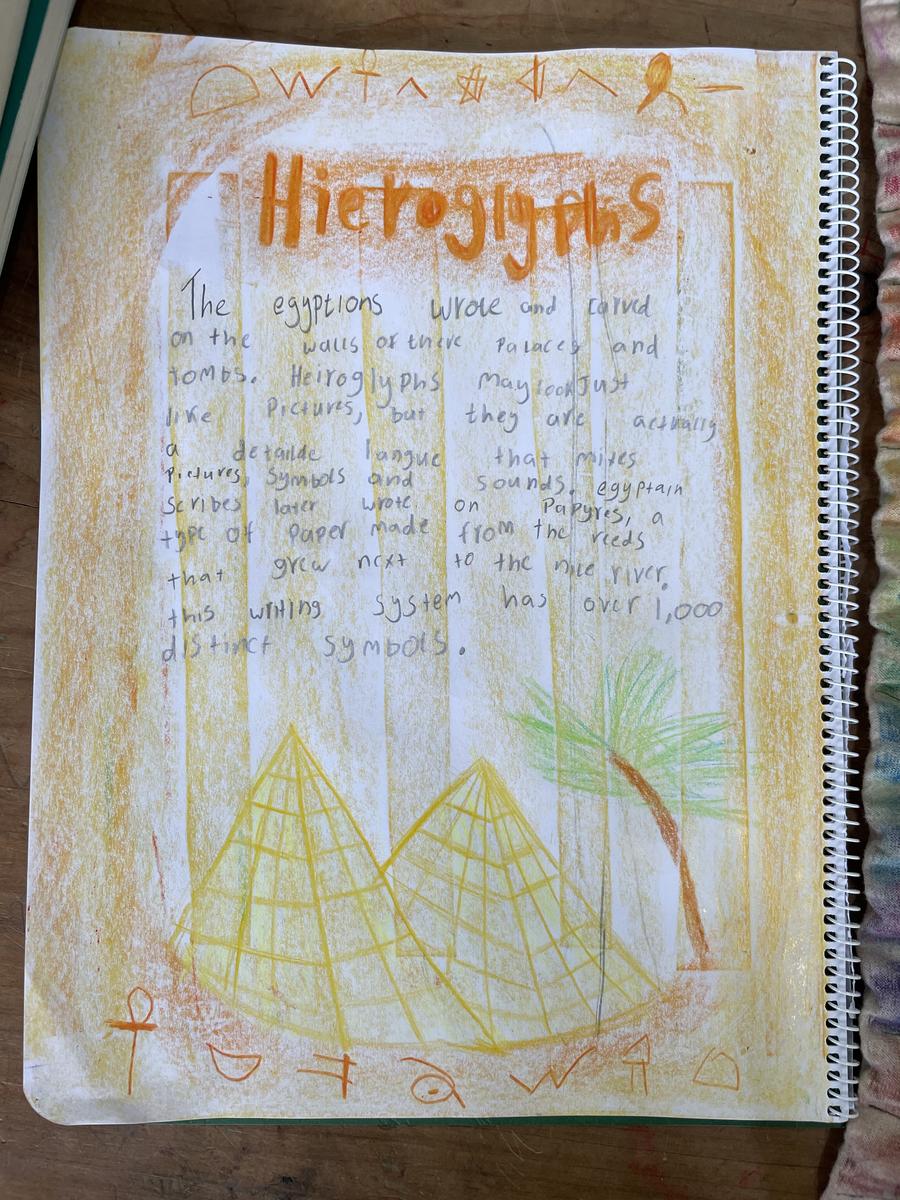 Hieroglyphs
The egyptions wrote and carved
on the walls of there palaces and
tombs. Heiroglyphs may look Just
like Pictures, but they are actually
a detailde langue that mixes
Pictures, symbols and sounds. egyptain
Scribes later wrote on Papyres, a
type of Paper made from the reeds
that grew next to the nile river.
this writing system has over 1,000
distinct symbols.